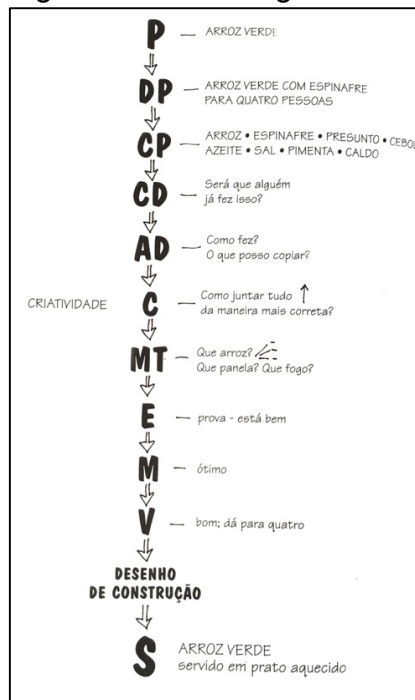 P
ARROZ VERDE
DP
ARROZ VERDE COM ESPINAFRE
PARA QUATRO PESSOAS
CP
ARROZ • ESPINAFRE • PRESUNTO •
AZEITE • SAL • PIMENTA • CALDO
CD
Será que alguém
já fez isso?
AD
Como fez?
O que posso copiar?
CRIATIVIDADE
C
Como juntar tudo
da maneira mais correta?
MT
Que arroz?
Que panela? Que fogo?
E
prova - está bem
M
ótimo
V
bom; dá para quatro
DESENHO
DE CONSTRUÇÃO
S
ARROZ VERDE
servido em prato aquecido